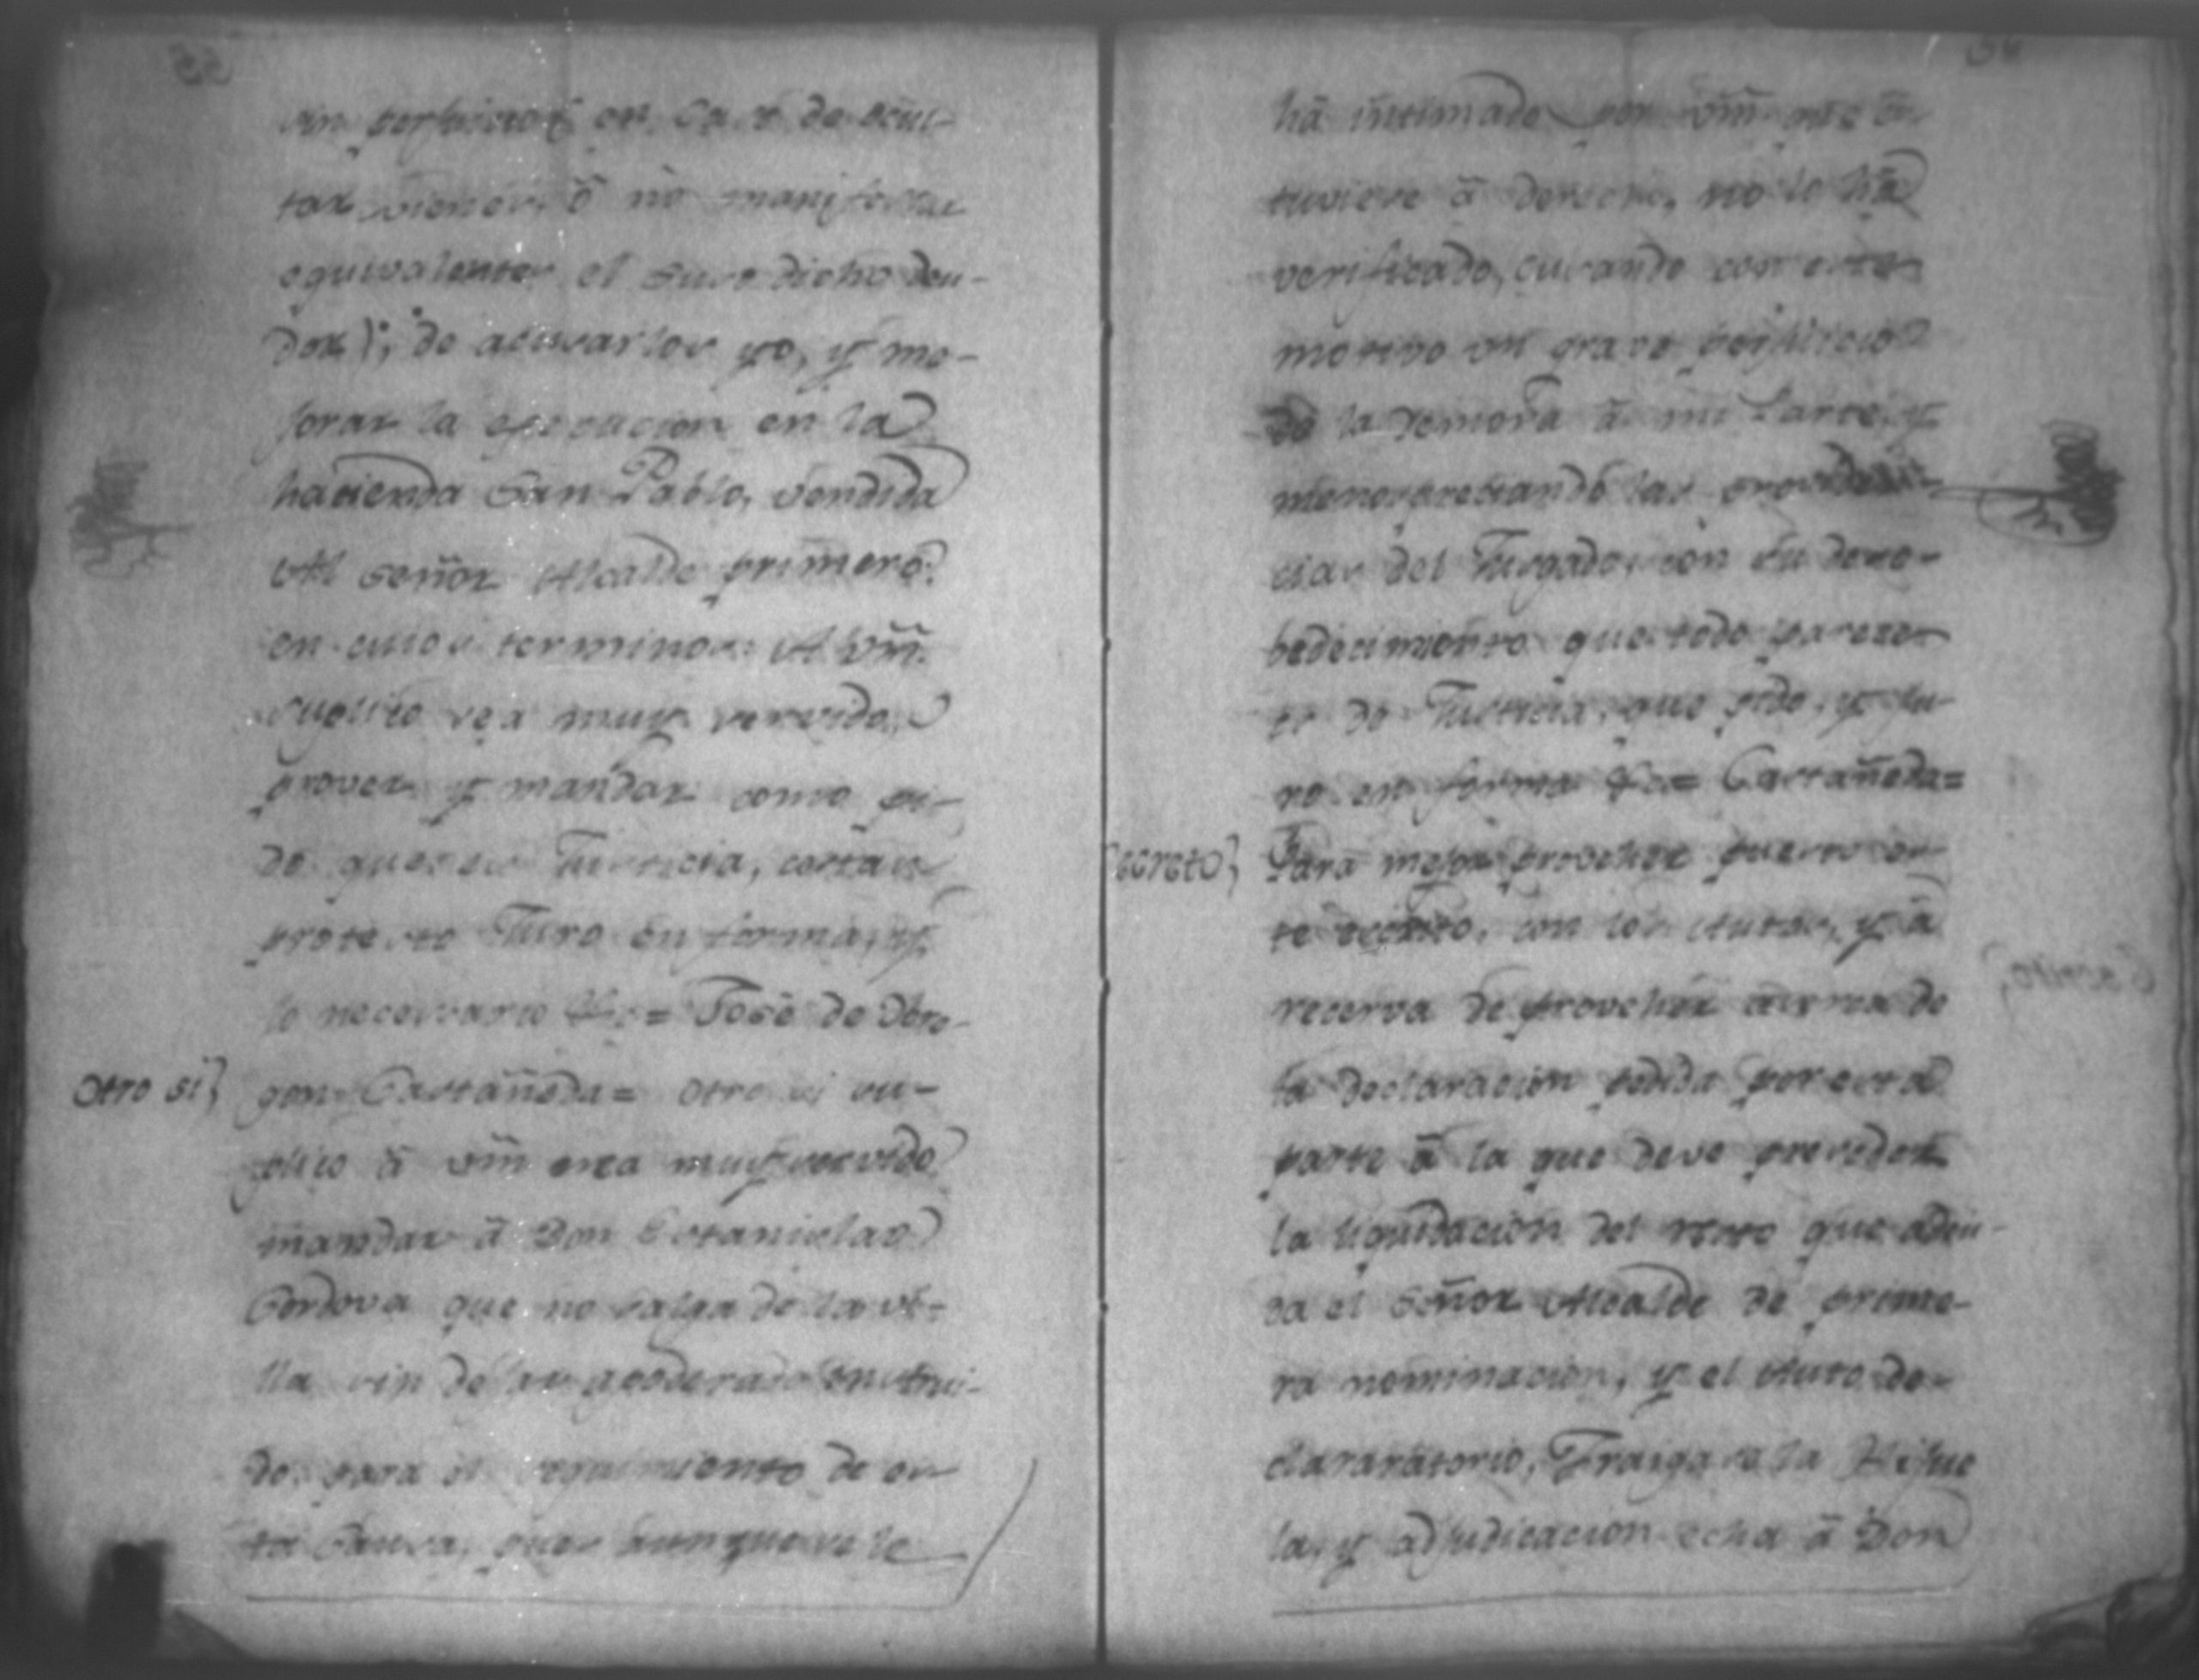 sin perjuicio en caso de ocul-
tar vienes, ô no manifestar
equivalentes el suso dicho deu-
dor); de acusarlos yo, y me-
jorar la execucion en la
hacienda San Pablo, vendida
Al señor Alcalde primero.
en cuios terminos A Vm̃.
Suplico sea muy servido,
prover y mandar como pi-
do que es Justicia, costas
protesto Juro en forma, y
lo necessario &c.= José de Obre-
Otro si} gon Castañeda= Otro si su-
plico â Vm̃ sea muy servido
mandar â Don Estanislao
Cordova que no salga de la vi-
lla sin dejar apoderado instrui-
do para el seguimiento de es-
ta Causa, pues aunque se le
hâ intimado por Vm̃ que es-
tuviere â derecho, no lo hâ
verificado, causando con este
motivo un grave perjuicio
de la demora â mi Parte, y
menospreciando las providen-
cias del Jusgado, con su deso-
bedecimiento que todo parece
es de Justicia, que pido, y Ju-
ro en forma &c.= Castañeda=
ecreto} Para mejor provehér puesto es-
te escrito, con los Autos, y â
recerva de provehér acerca de
la declaracion pedida por esta
parte â la que deve preceder
la liquidacion del resto que adeu-
da el Señor Alcalde de prime-
ra nominacion, y el Auto de-
clararatorio, Traigase la Hijue
la, y adjudicacion echa â Don